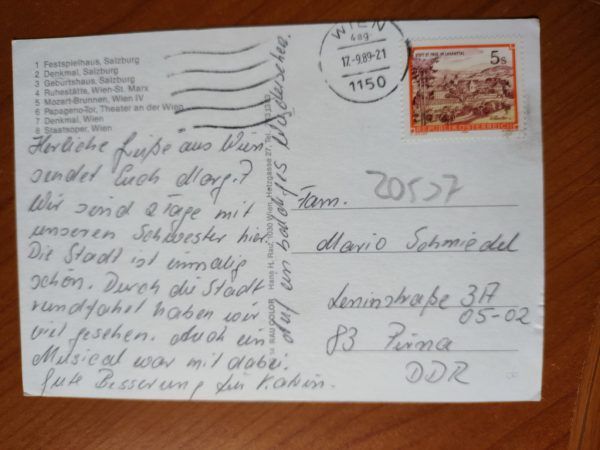 1 Festspielhaus, Salzburg
2 Denkmal, Salzburg
3 Geburtshaus, Salzburg
4 Ruhestätte, Wien-St. Marx
5 Mozart-Brunnen, Wien IV
6 Papageno-Tor, Theater an der Wien
7 Denkmal, Wien
8 Staatsoper, Wien
Herzliche Grüße aus Wien
sendet Euch
Wir sind 2 Tage mit
unseren Schwester hier.
Die Stadt ist einmalig
schön. Durch die Stadt
rundfahrt haben wir
viel gesehen. Auch ein
Musical war mit dabei.
Gute Besserung für Katrin.
Auf ein baldiges
RAU COLOR Hans H. Rau, 1030 Wien, Hetzgasse 27, Tel.
WIEN
17.-9.89-21
1150
5s
REPUBLIK ÖSTERREICH
20537
Fam.
Mario Schmiedel
Leninstraße 3A
05-02
83 Pirna
DDR